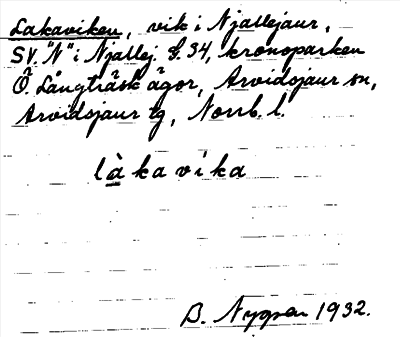 Lakaviken, vik i Njallejaur,
SV. "N" i Njallej. f. 34, kronoparken
Ö. Långträsk ägor, Arvidsjaur sn,
Arvidsjaur tg, Norrb. l.
làkavika
B. Nygren 1932.